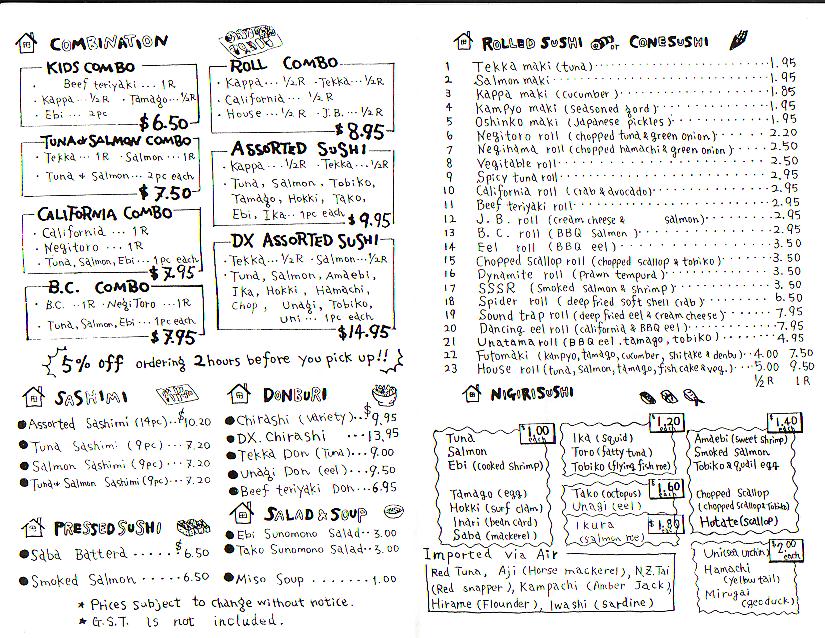 COMBINATION
KIDS COMBO
· Beef teriyaki ... 1R
· Kappa ... ½R · Tamago ... ½R
· Ebi ... 2pc
$6.50
TUNA & SALMON COMBO
· Tekka ... 1R · Salmon ... 1R
· Tuna & Salmon ... 2pc each
$7.50
CALIFORNIA COMBO
· California ... 1R
· Negitoro ... 1R
· Tuna, Salmon, Ebi ... 1pc each
$7.95
B.C. COMBO
· B.C. ... 1R · Negi Toro ... 1R
· Tuna, Salmon, Ebi ... 1pc each
$7.95
ROLL COMBO
· Kappa ... ½R · Tekka ... ½R
· California ... ½R
· House ... ½R · J.B. ... ½R
$8.95
ASSORTED SUSHI
· Kappa ... ½R · Tekka ... ½R
· Tuna, Salmon, Tobiko,
Tamago, Hokki, Tako,
Ebi, Ika ... 1pc each
$9.95
DX ASSORTED SUSHI
· Tekka ... ½R · Salmon ... ½R
· Tuna, Salmon, Amaebi,
Ika, Hokki, Hamachi,
Chop, Unagi, Tobiko,
Uni ... 1pc each
$14.95
5% off ordering 2 hours before you pick up!!
SASHIMI
Assorted Sashimi (14pc) ... $10.20
Tuna Sashimi (9pc) ... 7.20
Salmon Sashimi (9pc) ... 7.20
Tuna & Salmon Sashimi (9pc) ... 7.20
PRESSED SUSHI
Saba Battera ..... $6.50
Smoked Salmon ..... 6.50
DONBURI
Chirashi (variety) ... $9.95
DX. Chirashi ... 13.95
Tekka Don (Tuna) ... 9.00
Unagi Don (eel) ... 9.50
Beef teriyaki Don ... 6.95
SALAD & SOUP
Ebi Sunomono Salad .. 3.00
Tako Sunomono Salad .. 3.00
Miso Soup ....... 1.00
* Prices subject to change without notice.
* G.S.T. is not included.
ROLLED SUSHI or CONE SUSHI
1 Tekka maki (tuna) 1.95
2 Salmon maki 1.95
3 Kappa maki (cucumber) 1.85
4 Kampyo maki (Seasoned gord) 1.95
5 Oshinko maki (Japanese pickles) 1.95
6 Negitoro roll (chopped tuna & green onion) 2.20
7 Negihama roll (chopped hamachi & green onion) 2.50
8 Vegitable roll 2.50
9 Spicy tuna roll 2.95
10 California roll (crab & avocado) 2.95
11 Beef teriyaki roll 2.95
12 J. B. roll (cream cheese & salmon) 2.95
13 B. C. roll (BBQ Salmon) 2.95
14 Eel roll (BBQ eel) 3.50
15 Chopped Scallop roll (chopped scallop & tobiko) 3.50
16 Dynamite roll (prawn tempura) 3.50
17 SSSR (Smoked salmon & shrimp) 3.50
18 Spider roll (deep fried soft shell crab) 6.50
19 Sound trap roll (deep fried eel & cream cheese) 7.95
20 Dancing eel roll (california & BBQ eel) 7.95
21 Unatama roll (BBQ eel, tamago, tobiko) 4.95
22 Futomaki (kanpyo, tamago, cucumber, shitake & denbu) 4.00 7.50
23 House roll (tuna, salmon, tamago, fish cake & veg.) 5.00 9.50
½R 1R
NIGIRI SUSHI
$1.00 each
Tuna
Salmon
Ebi (cooked shrimp)
Tamago (egg)
Hokki (surf clam)
Inari (bean card)
Saba (mackerel)
$1.20 each
Ika (squid)
Toro (fatty tuna)
Tobiko (flying fish roe)
$1.60 each
Tako (octopus)
Unagi (eel)
$1.80
Ikura
(salmon roe)
$1.40 each
Amaebi (sweet shrimp)
Smoked Salmon
Tobiko & quail egg
Chopped Scallop
(chopped scallop & tobiko)
Hotate (scallop)
$2.00 each
Uni (sea urchin)
Hamachi
(yellow tail)
Mirugai
(geoduck)
Imported via Air
Red Tuna, Aji (Horse mackerel), N.Z. Tai
(Red snapper), Kampachi (Amber Jack),
Hirame (Flounder), Iwashi (Sardine)